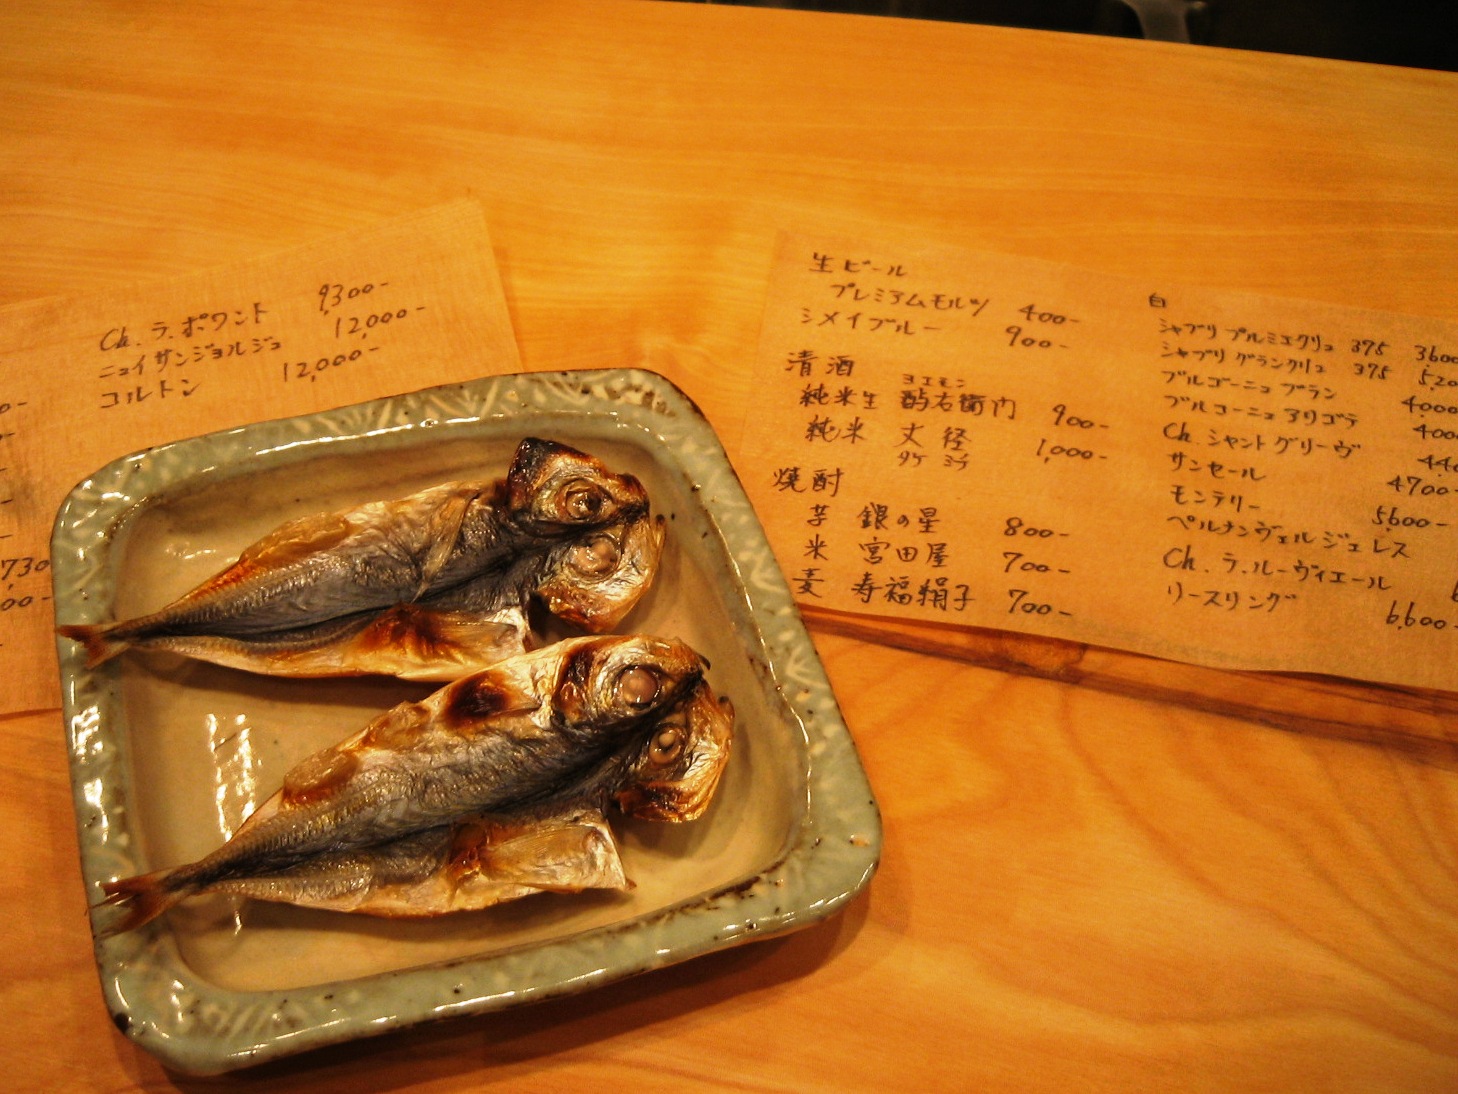 Ch. ラ.ポワント 9,300-
ニュイサンジョルジュ 12,000-
コルトン 12,000-
730
00-
生ビール
プレミアムモルツ 400-
シメイブルー 900-
清酒
ヨエモン
純米生 酉右衛門 900-
純米 丈径 1,000-
タケ ミチ
焼酎
芋 銀の星 800-
米 宮田屋 700-
麦 寿福絹子 700-
白
シャブリ プルミエクリュ 375 3600
シャブリ グランクリュ 375 5,20
ブルゴーニュ ブラン 4000
ブルゴーニュ アリゴテ 400
Ch. シャントグリーヴ 440
サンセール 4700-
モンテリー 5,600-
ペルナンヴェルジュレス
Ch. ラ.ルーヴィエール
リースリング 6,600-